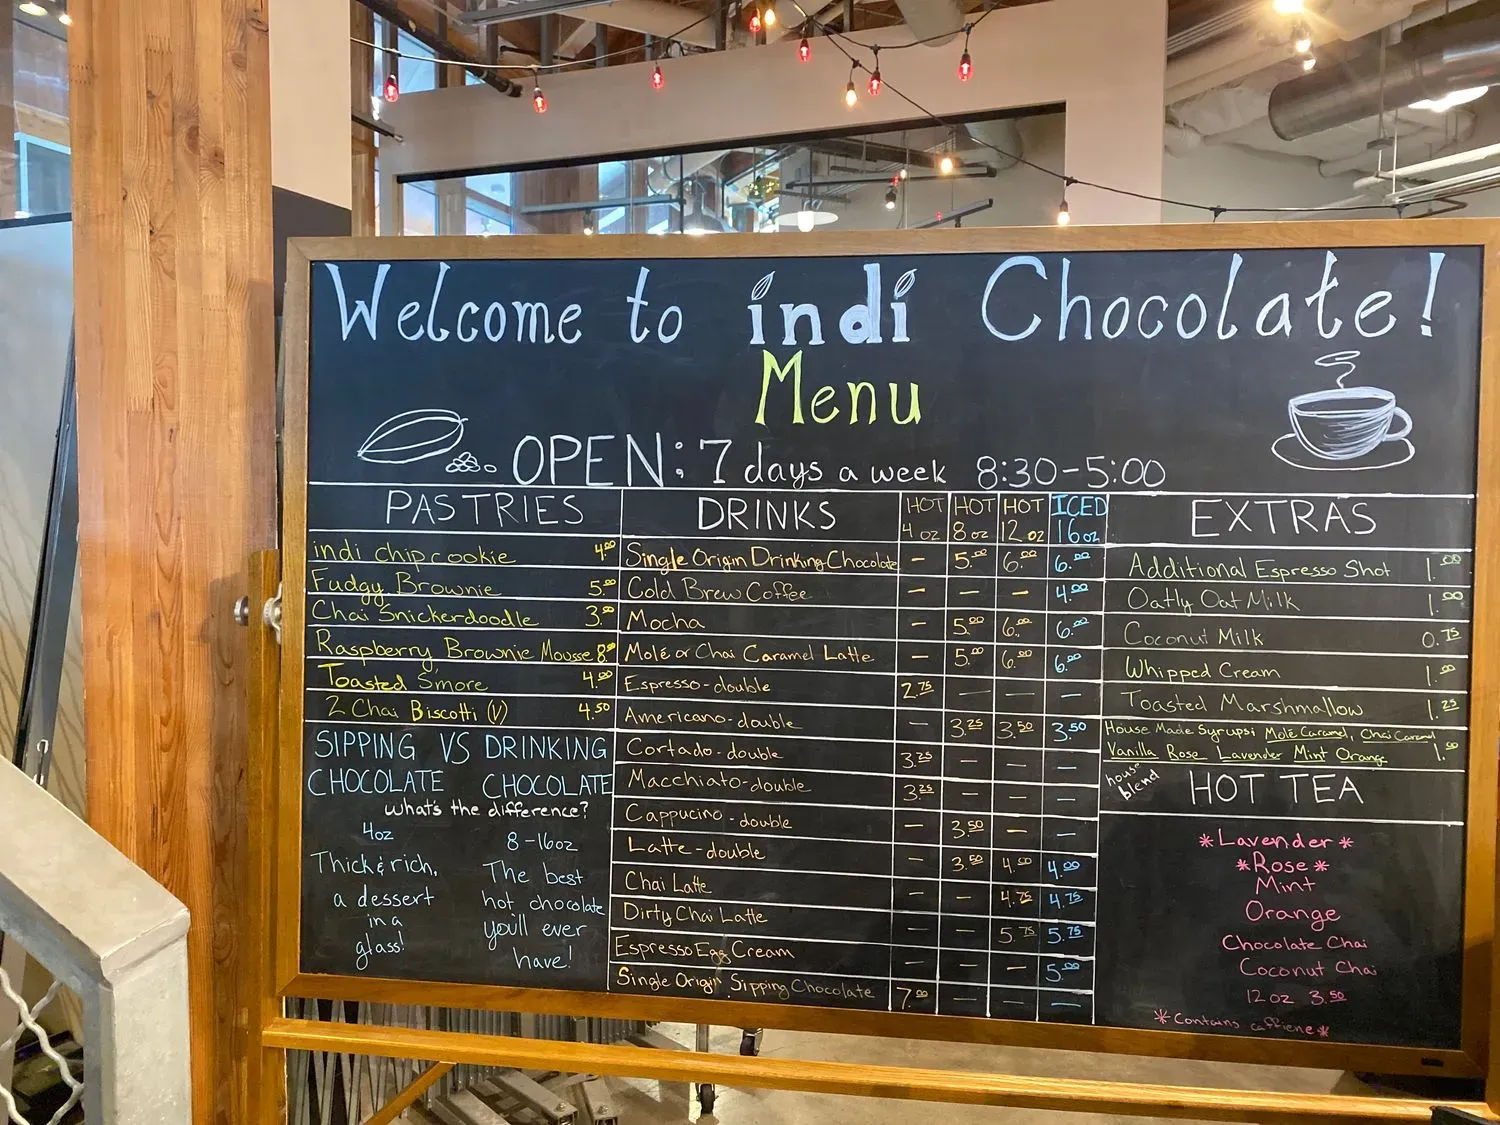 Welcome to indi Chocolate!
Menu
OPEN: 7 days a week 8:30-5:00
PASTRIES
indi chip cookie 4.00
Fudgy Brownie 5.00
Chai Snickerdoodle 3.00
Raspberry Brownie Mousse 8.00
Toasted S'more 4.00
2 Chai Biscotti (V) 4.50
SIPPING VS DRINKING
CHOCOLATE CHOCOLATE
what's the difference?
4oz
Thick & rich,
a dessert
in a
glass!
8-16oz
The best
hot chocolate
you'll ever
have!
DRINKS HOT 4 oz HOT 8 oz HOT 12 oz ICED 16 oz
Single Origin Drinking Chocolate - 5.00 6.00 6.00
Cold Brew Coffee - - - 4.00
Mocha - 5.00 6.00 6.00
Molé or Chai Caramel Latte - 5.00 6.00 6.00
Espresso-double 2.75 - - -
Americano-double - 3.25 3.50 3.50
Cortado-double 3.25 - - -
Macchiato-double 3.25 - - -
Cappucino-double - 3.50 - -
Latte-double - 3.50 4.00 4.00
Chai Latte - - 4.75 4.75
Dirty Chai Latte - - 5.75 5.75
Espresso Egg Cream - - - 5.00
Single Origin Sipping Chocolate 7.00 - - -
EXTRAS
Additional Espresso Shot 1.00
Oatly Oat Milk 1.00
Coconut Milk 0.75
Whipped Cream 1.00
Toasted Marshmallow 1.25
House Made Syrups: Molé Caramel, Chai Caramel
Vanilla Rose Lavender Mint Orange 1.00
house blend
HOT TEA
*Lavender*
*Rose*
Mint
Orange
Chocolate Chai
Coconut Chai
12 oz 3.50
*Contains caffiene*